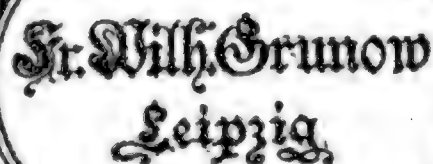 Fr. Wilh. Grunow
Leipzig